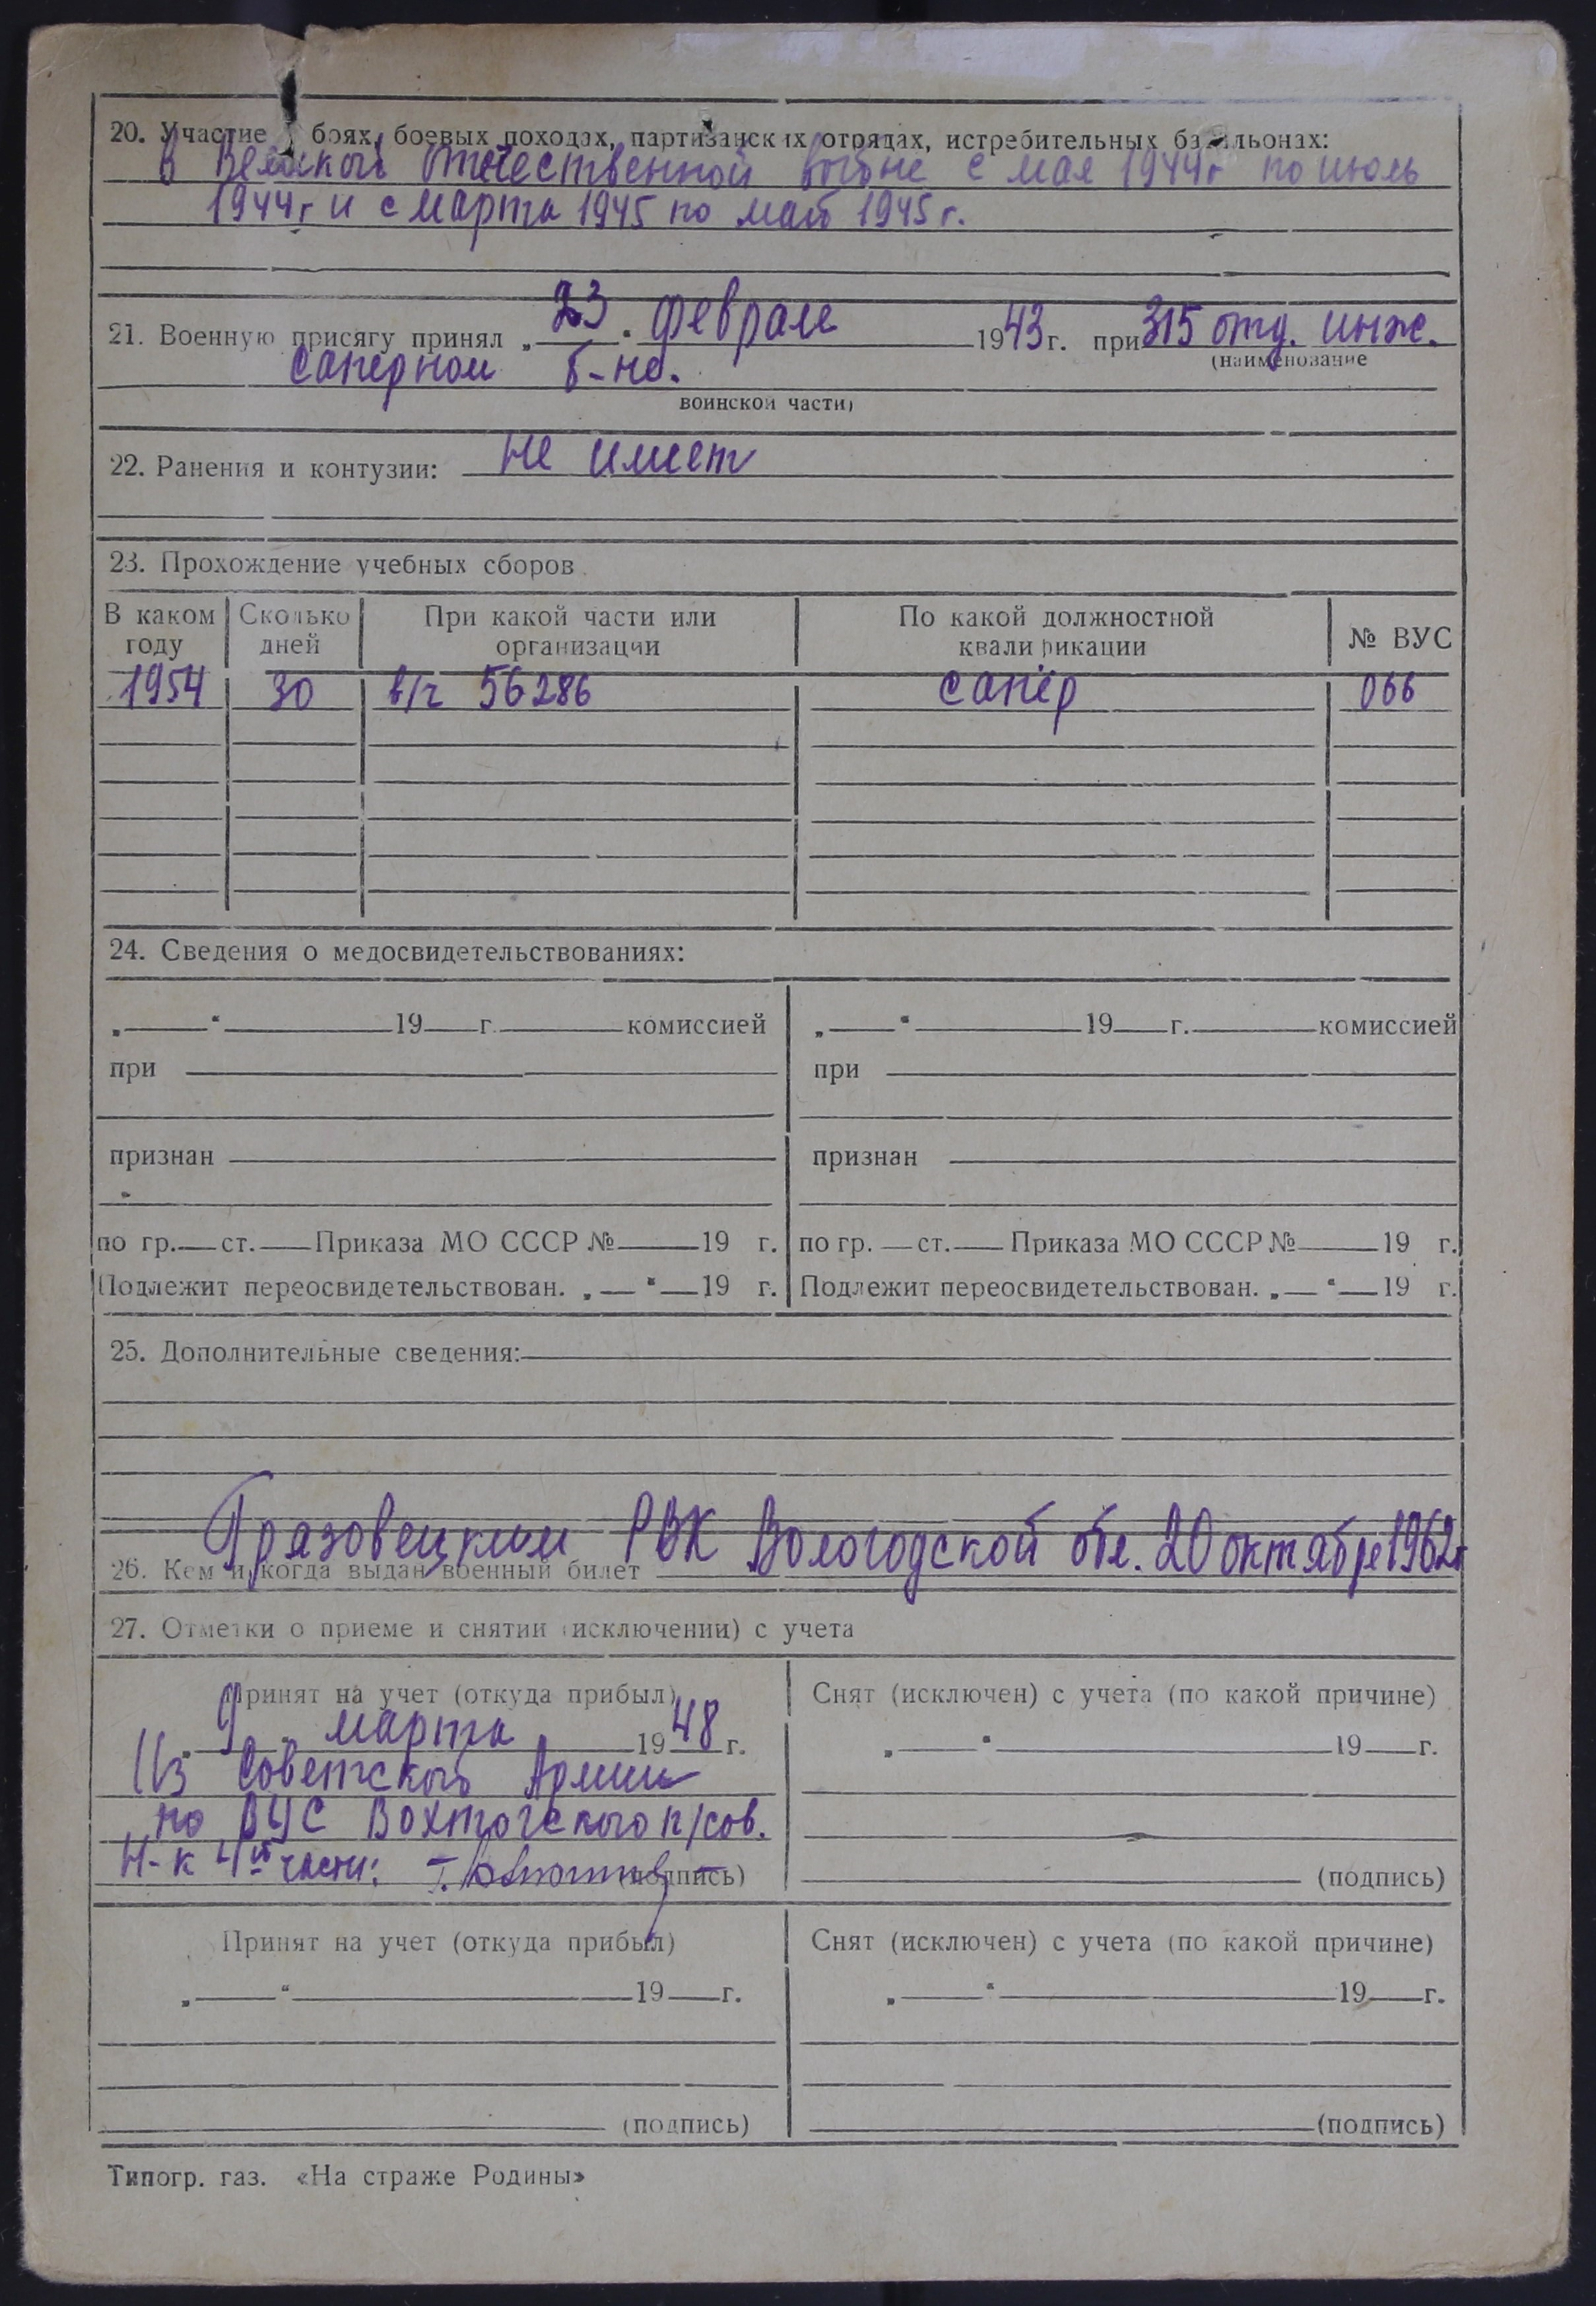 20. Участие в боях, боевых походах, партизанских отрядах, истребительных батальонах:
в Великой Отечественной войне с мая 1944г по июль
1944г и с марта 1945 по май 1945 г.
21. Военную присягу принял „ 23 " февраля 1943 г. при 315 отд. инж.
(наименование
саперном б-не.
воинской части)
22. Ранения и контузии: не имеет
23. Прохождение учебных сборов
В каком году Сколько дней При какой части или организации По какой должностной квалификации № ВУС
1954 30 в/ч 56286 сапёр 066
24. Сведения о медосвидетельствованиях:
„ " 19 г. комиссией „ " 19 г. комиссией
при при
признан признан
по гр. ст. Приказа МО СССР № 19 г. по гр. ст. Приказа МО СССР № 19 г.
Подлежит переосвидетельствован. „ " 19 г. Подлежит переосвидетельствован. „ " 19 г.
25. Дополнительные сведения:
Грязовецким РВК Вологодской обл. 20 октября 1962г
26. Кем и когда выдан военный билет
27. Отметки о приеме и снятии (исключении) с учета
Принят на учет (откуда прибыл) Снят (исключен) с учета (по какой причине)
9 марта 1948 г. „ " 19 г.
Из Советской Армии
по ВУС Вохтогского п/сов.
Н-к 4й части: (подпись) (подпись)
Принят на учет (откуда прибыл) Снят (исключен) с учета (по какой причине)
„ " 19 г. „ " 19 г.
(подпись) (подпись)
Типогр. газ. «На страже Родины»